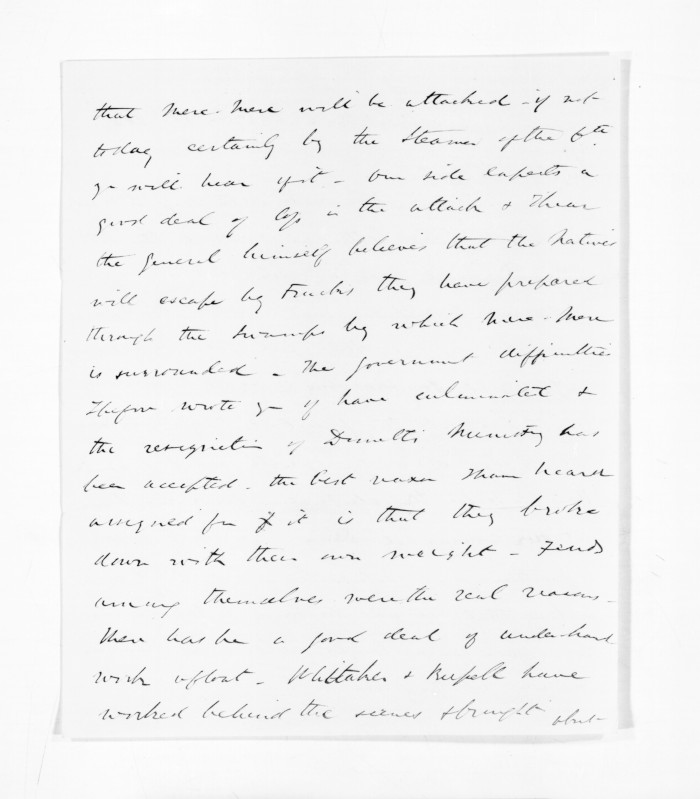 that Mere-Mere will be attacked - if not
today certainly by the Steamer of the 6th
yu will hear of it - Our side expects a
good deal of loss in the attack & I hear
the General himself believes that the Natives
will escape by tracks they have prepared
through the swamps by which Mere-Mere
is surrounded - The Government difficulties
I before wrote yu of have culminated &
the resignation of Domett's Ministry has
been accepted - the best reason I have heard
assigned for it is that they broke
down with their own weight - Feuds
among themselves were the real reasons -
There has been a good deal of underhand
work afloat - Whitaker & Russell have
worked behind the scenes & brought about